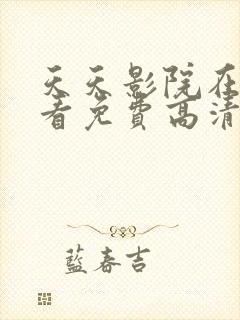 天天影院在
看免费高清
藍春吉